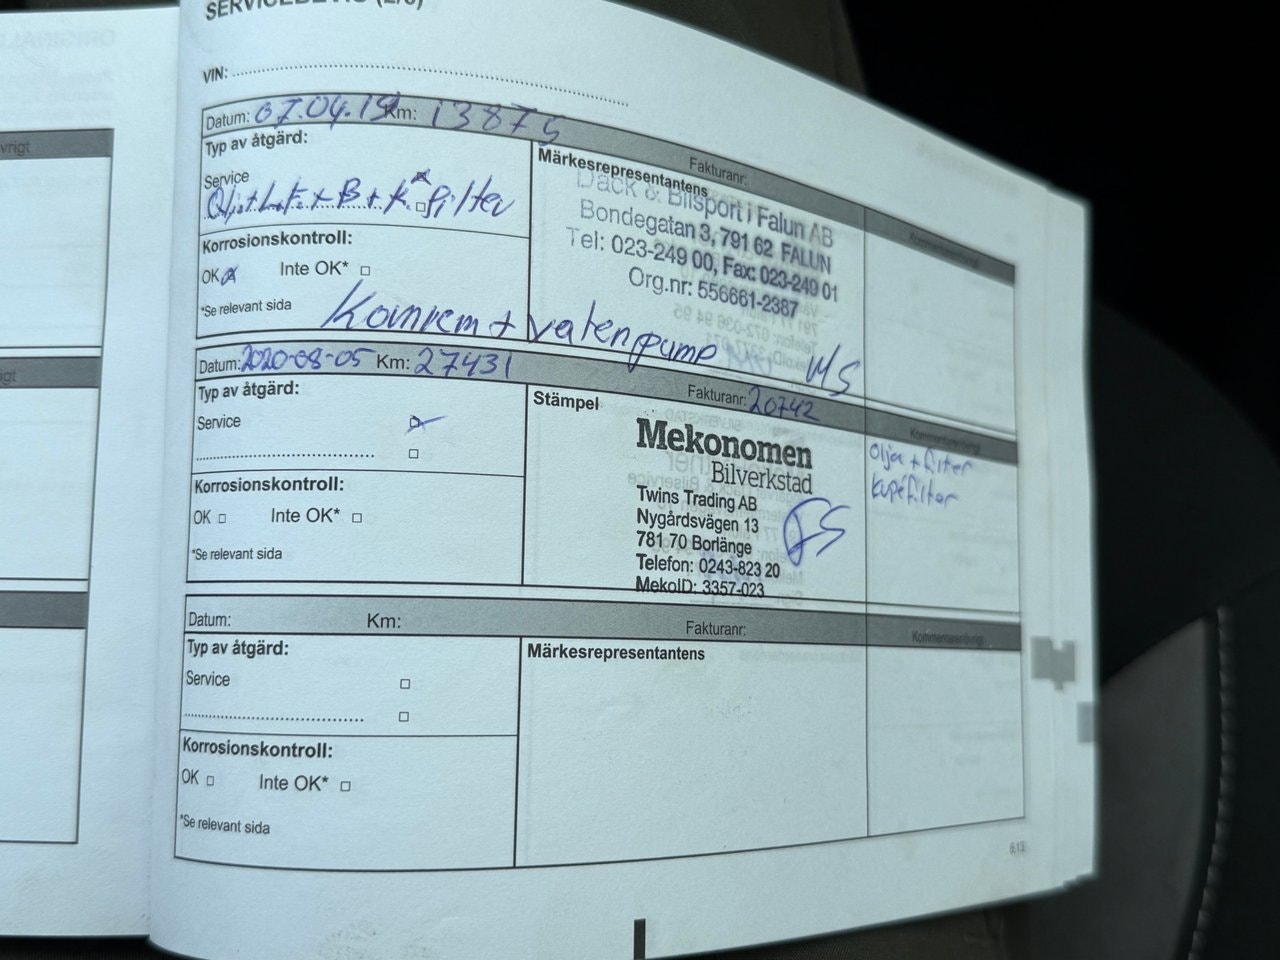 VIN:
Datum: 07.04.19 Km: 13875
Fakturanr:
Typ av åtgärd:
Service
Olj.+L.F.+B+K.filter
Korrosionskontroll:
OK Inte OK*
*Se relevant sida
Märkesrepresentantens
Däck & Bilsport i Falun AB
Bondegatan 3, 791 62 FALUN
Tel: 023-249 00, Fax: 023-249 01
Org.nr: 556661-2387
Kamrem + vatenpump MS
Datum: 2020-08-05 Km: 27431
Fakturanr: 20742
Typ av åtgärd:
Service
Korrosionskontroll:
OK Inte OK*
*Se relevant sida
Stämpel
Mekonomen
Bilverkstad
Twins Trading AB
Nygårdsvägen 13
781 70 Borlänge
Telefon: 0243-823 20
MekoID: 3357-023
Kommentarer/övrigt
olja + filter
kupéfilter
Datum: Km:
Fakturanr:
Kommentarer/övrigt
Typ av åtgärd:
Service
Korrosionskontroll:
OK Inte OK*
*Se relevant sida
Märkesrepresentantens
6.13